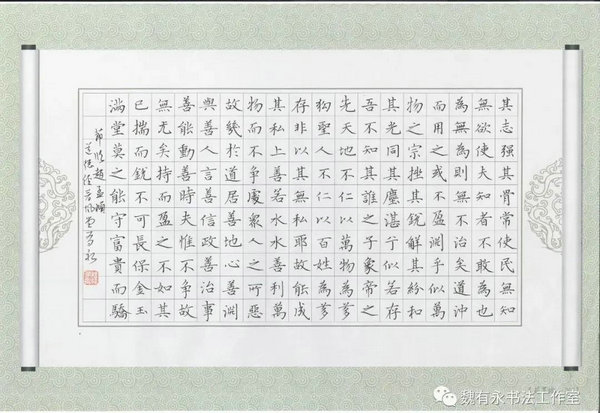 其志强其骨常使民無知
無欲使夫知者不敢為也
為無為則無不治矣道沖
而用之或不盈渊乎似萬
物之宗挫其銳解其紛和
其光同其塵湛兮似若存
吾不知其誰之子象帝之
先天地不仁以萬物為芻
狗聖人不仁以百姓為芻
存非以其無私耶故能成
其私上善若水水善利萬
物而不爭處衆人之所惡
故幾於道居善地心善淵
與善人言善信政善治事
善能動善時夫惟不爭故
無尤矣持而盈之不如其
已揣而銳不可長保金玉
滿堂莫之能守富貴而驕
節臨趙孟頫
道德經
魏有永书法工作室